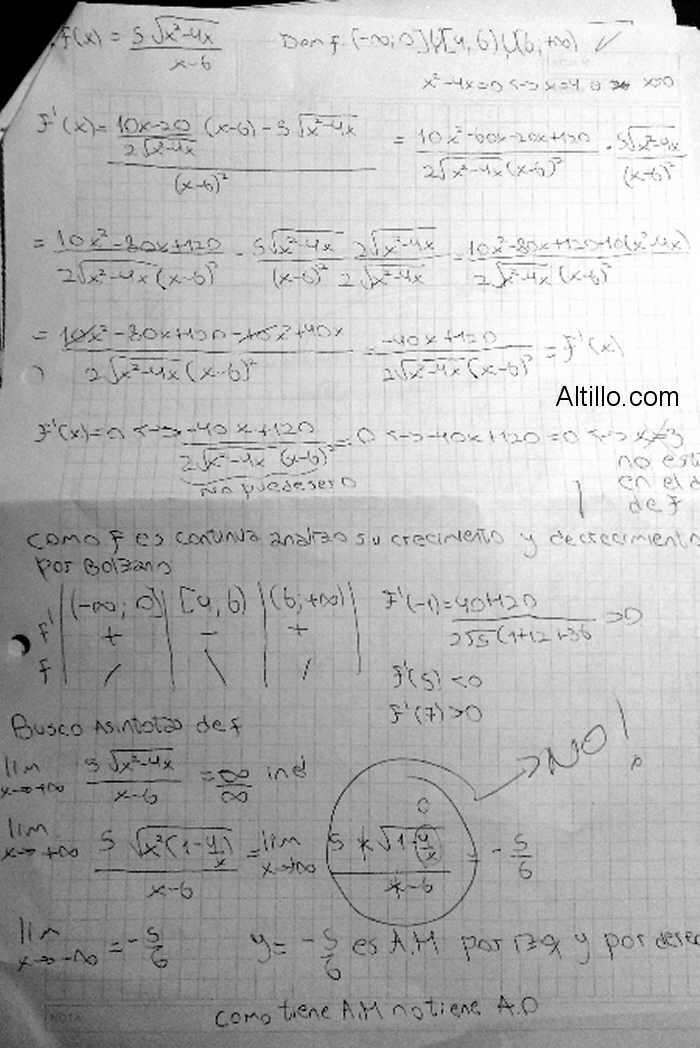 f(x) = 5√(x²-4x) / (x-6)   Dom f. (-∞; 0] U [4, 6) U (6; +∞) ✓
x²-4x=0 <-> x=4 o x=0
F'(x) = [ (10x-20)/(2√(x²-4x)) (x-6) - 5√(x²-4x) ] / (x-6)² = (10x²-60x-20x+120) / (2√(x²-4x) (x-6)²) · 5√(x²-4x) / (x-6)²
= (10x²-80x+120) / (2√(x²-4x) (x-6)²) - 5√(x²-4x) / (x-6)² 2√(x²-4x) / 2√(x²-4x) = (10x²-80x+120-10(x²-4x)) / (2√(x²-4x) (x-6)²)
= (10x²-80x+120-10x²+40x) / (2√(x²-4x) (x-6)²) = (-40x+120) / (2√(x²-4x) (x-6)²) = F'(x)
Altillo.com
F'(x)=0 <-> (-40x+120) / (2√(x²-4x) (x-6)²) = 0 <-> -40x+120=0 <-> x=3
No puede ser 0
no est
en el d
de f
como f es continua analizo su crecimiento y decrecimiento
por Bolzano
(-∞; 0] | [4, 6) | (6; +∞)
F' | + | - | +
f | / | \ | /
F'(-1) = (40+120) / (2√5 (1+12+36 >0
F'(5) <0
F'(7) >0
Busco Asintotas de f
lim x→+∞ 5√(x²-4x) / (x-6) = ∞/∞ ind
NO!
lim x→+∞ 5 √(x²(1-4/x)) / (x-6) = lim x→+∞ 5 x √(1-4/x) / (x-6) = -5/6
0
lim x→-∞ = -5/6   y = -5/6 es A.H por izq y por derec
como tiene A.H no tiene A.O
NOTA